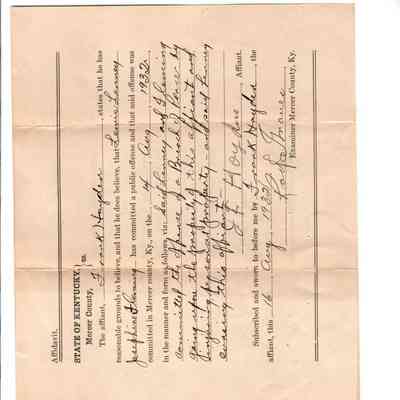 Affidavit.
STATE OF KENTUCKY,
Mercer County, } ss.
The affiant, Frank Hayden, states that he has
reasonable grounds to believe, and that he does believe, that Lewis
Josephine has committed a public offense and that said offense was
committed in Mercer county, Ky., on the 4 Aug 1932
in the manner and form as follows, viz: Said and Fleming
committed the offence of a Breach of Peace by
going upon the property of this affiant and
injuring personal property, and said
cursing this affiant
Affiant.
Subscribed and sworn to before me by Frank Hayden, the
affiant, this 16 Aug 1932
Examiner Mercer County, Ky.